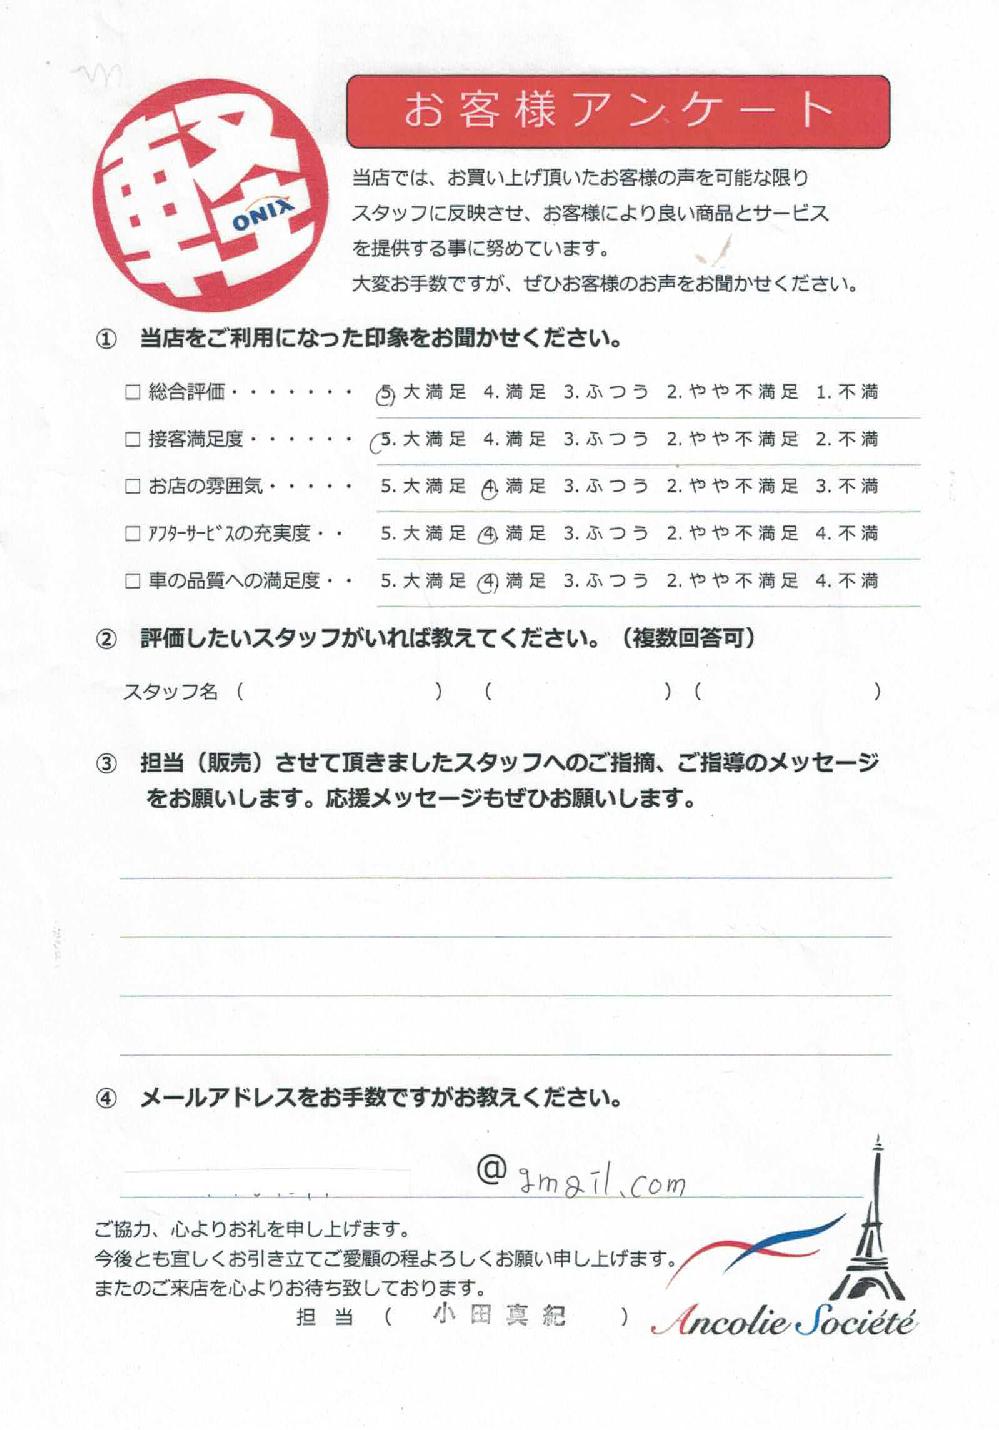 軽
ONIX
お客様アンケート
当店では、お買い上げ頂いたお客様の声を可能な限り
スタッフに反映させ、お客様により良い商品とサービス
を提供する事に努めています。
大変お手数ですが、ぜひお客様のお声をお聞かせください。
① 当店をご利用になった印象をお聞かせください。
□ 総合評価・・・・・・・ 5. 大満足 4. 満足 3. ふつう 2. やや不満足 1. 不満
□ 接客満足度・・・・・・ 5. 大満足 4. 満足 3. ふつう 2. やや不満足 2. 不満
□ お店の雰囲気・・・・・ 5. 大満足 4. 満足 3. ふつう 2. やや不満足 3. 不満
□ ｱﾌﾀｰｻｰﾋﾞｽの充実度・・ 5. 大満足 4. 満足 3. ふつう 2. やや不満足 4. 不満
□ 車の品質への満足度・・ 5. 大満足 4. 満足 3. ふつう 2. やや不満足 4. 不満
② 評価したいスタッフがいれば教えてください。（複数回答可）
スタッフ名（ ）（ ）（ ）
③ 担当（販売）させて頂きましたスタッフへのご指摘、ご指導のメッセージ
をお願いします。応援メッセージもぜひお願いします。
④ メールアドレスをお手数ですがお教えください。
@gmail.com
ご協力、心よりお礼を申し上げます。
今後とも宜しくお引き立てご愛顧の程よろしくお願い申し上げます。
またのご来店を心よりお待ち致しております。
担当（ 小田真紀 ）
Ancolie Société